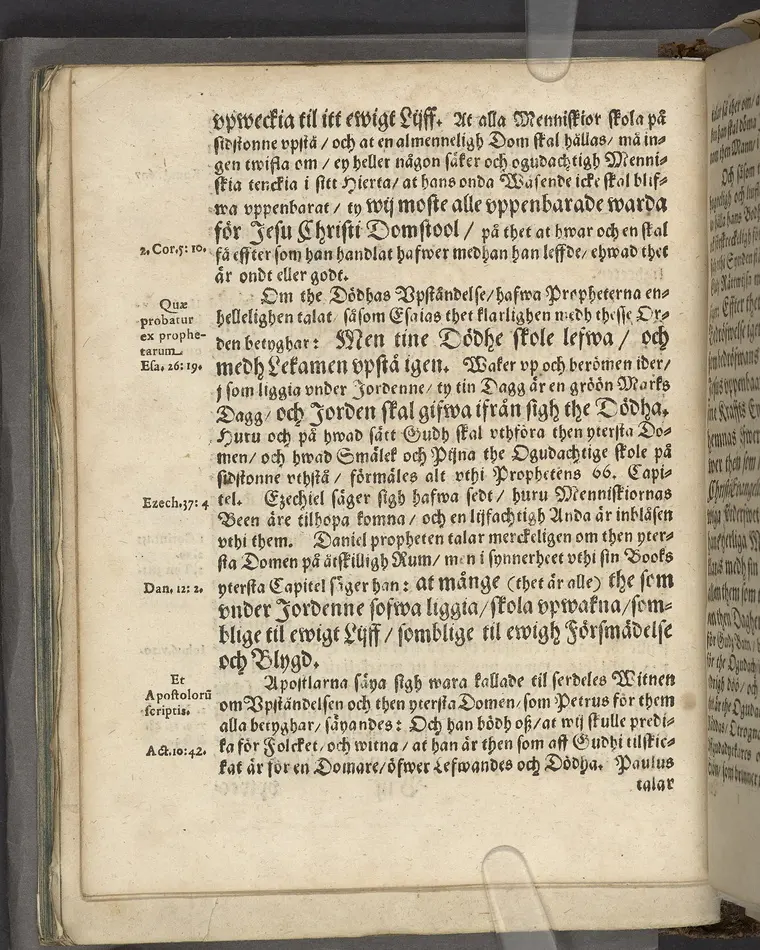 vpweckia til itt ewigt Lijff. At alla Menniskior skola på
sidstonne vpstå / och at en almenneligh Dom skal hållas / må in-
gen twifla om / ey heller någon säker och ogudachtigh Menni-
skia tenckia i sitt Hierta / at hans onda Wäsende icke skal blif-
wa vppenbarat / ty wij moste alle vppenbarade warda
för Jesu Christi Domstool / på thet at hwar och en skal
2. Cor. 5: 10.
få effter som han handlat hafwer medhan han leffde / ehwad thet
är ondt eller godt.
Om the Dödhas Vpståndelse / hafwa Propheterna en-
Quæ
probatur
ex prophe-
tarum
Esa. 26: 19.
hellelighen talat / såsom Esaias thet klarlighen medh thesse Or-
den betyghar: Men tine Dödhe skole lefwa / och
medh Lekamen vpstå igen. Waker vp och berömen ider /
j som liggia vnder Jordenne / ty tin Dagg är en gröön Marks
Dagg / och Jorden skal gifwa ifrån sigh the Dödha.
Huru och på hwad sätt Gudh skal vthföra then ytersta Do-
men / och hwad Smälek och Pijna the Ogudachtige skole på
sidstonne vthstå / förmäles alt vthi Prophetens 66. Capi-
tel. Ezechiel säger sigh hafwa sedt / huru Menniskiornas
Ezech. 37: 4
Been äre tilhopa komna / och en lijfachtigh Anda är inblåsen
vthi them. Daniel propheten talar merckeligen om then yter-
sta Domen på åtskilligh Rum / men i synnerheet vthi sin Books
Dan. 12: 2.
ytersta Capitel säger han: at månge (thet är alle) the som
vnder Jordenne sofwa liggia / skola vpwakna / som-
blige til ewigt Lijff / somblige til ewigh Försmädelse
och Blygd.
Et
Apostolorū
scriptis.
Apostlarna säya sigh wara kallade til serdeles Witnen
om Vpståndelsen och then ytersta Domen / som Petrus för them
alla betyghar / säyandes: Och han bödh oß / at wij skulle predi-
ka för Folcket / och witna / at han är then som aff Gudhi tilskic-
Act. 10: 42.
kat är för en Domare / öfwer Lefwandes och Dödha. Paulus
talar